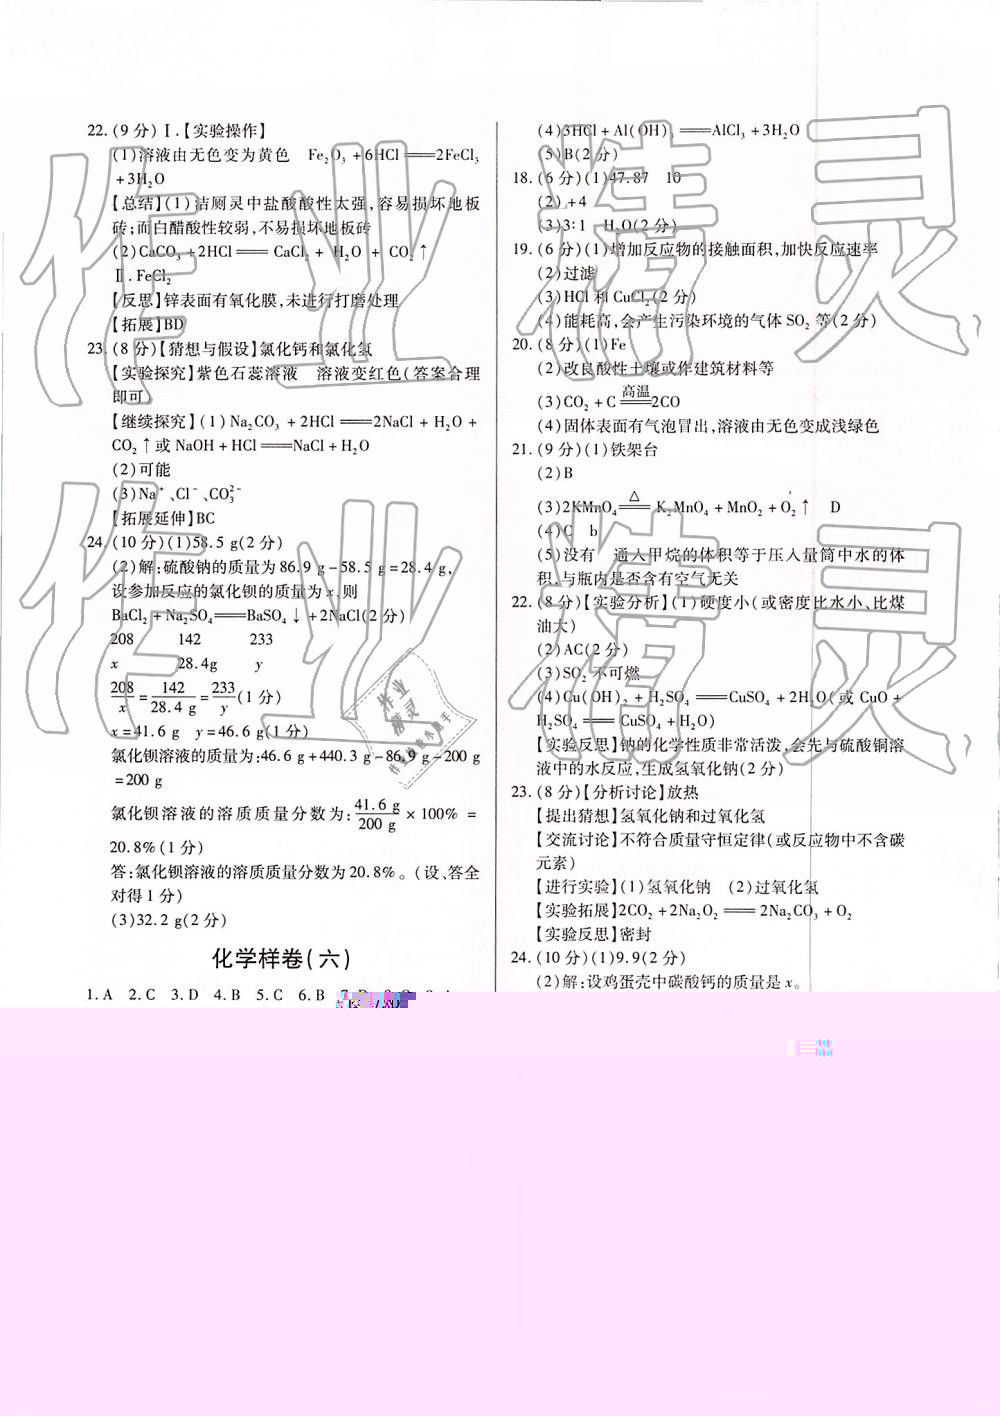 22.(9分)Ⅰ.【实验操作】
(1)溶液由无色变为黄色 Fe₂O₃+6HCl══2FeCl₃
+3H₂O
【总结】(1)洁厕灵中盐酸酸性太强,容易损坏地板
砖;而白醋酸性较弱,不易损坏地板砖
(2)CaCO₃+2HCl══CaCl₂+H₂O+CO₂↑
Ⅱ.FeCl₂
【反思】锌表面有氧化膜,未进行打磨处理
【拓展】BD
23.(8分)【猜想与假设】氯化钙和氯化氢
【实验探究】紫色石蕊溶液 溶液变红色(答案合理
即可)
【继续探究】(1)Na₂CO₃+2HCl══2NaCl+H₂O+
CO₂↑或NaOH+HCl══NaCl+H₂O
(2)可能
(3)Na⁺、Cl⁻、CO₃²⁻
【拓展延伸】BC
24.(10分)(1)58.5 g(2分)
(2)解:硫酸钠的质量为86.9 g-58.5 g=28.4 g,
设参加反应的氯化钡的质量为x,则
BaCl₂+Na₂SO₄══BaSO₄↓+2NaCl(2分)
208 142 233
x 28.4g y
208/x=142/28.4 g=233/y(1分)
x=41.6 g y=46.6 g(1分)
氯化钡溶液的质量为:46.6 g+440.3 g-86.9 g-200 g
=200 g
氯化钡溶液的溶质质量分数为:41.6 g/200 g×100%=
20.8%(1分)
答:氯化钡溶液的溶质质量分数为20.8%。(设、答全
对得1分)
(3)32.2 g(2分)
化学样卷(六)
1.A 2.C 3.D 4.B 5.C 6.B
(4)3HCl+Al(OH)₃══AlCl₃+3H₂O
(5)B(2分)
18.(6分)(1)47.87 10
(2)+4
(3)3:1 H₂O(2分)
19.(6分)(1)增加反应物的接触面积,加快反应速率
(2)过滤
(3)HCl和CuCl₂(2分)
(4)能耗高,会产生污染环境的气体SO₂等(2分)
20.(8分)(1)Fe
(2)改良酸性土壤或作建筑材料等
(3)CO₂+C═高温═2CO
(4)固体表面有气泡冒出,溶液由无色变成浅绿色
21.(9分)(1)铁架台
(2)B
(3)2KMnO₄═△═K₂MnO₄+MnO₂+O₂↑ D
(4)C b
(5)没有 通入甲烷的体积等于压入量筒中水的体
积,与瓶内是否含有空气无关
22.(8分)【实验分析】(1)硬度小(或密度比水小、比煤
油大)
(2)AC(2分)
(3)SO₂不可燃
(4)Cu(OH)₂+H₂SO₄══CuSO₄+2H₂O(或CuO+
H₂SO₄══CuSO₄+H₂O)
【实验反思】钠的化学性质非常活泼,会先与硫酸铜溶
液中的水反应,生成氢氧化钠(2分)
23.(8分)【分析讨论】放热
【提出猜想】氢氧化钠和过氧化氢
【交流讨论】不符合质量守恒定律(或反应物中不含碳
元素)
【进行实验】(1)氢氧化钠 (2)过氧化氢
【实验拓展】2CO₂+2Na₂O₂══2Na₂CO₃+O₂
【实验反思】密封
24.(10分)(1)9.9(2分)
(2)解:设鸡蛋壳中碳酸钙的质量是x。
作业精灵
作业精灵
作业精灵